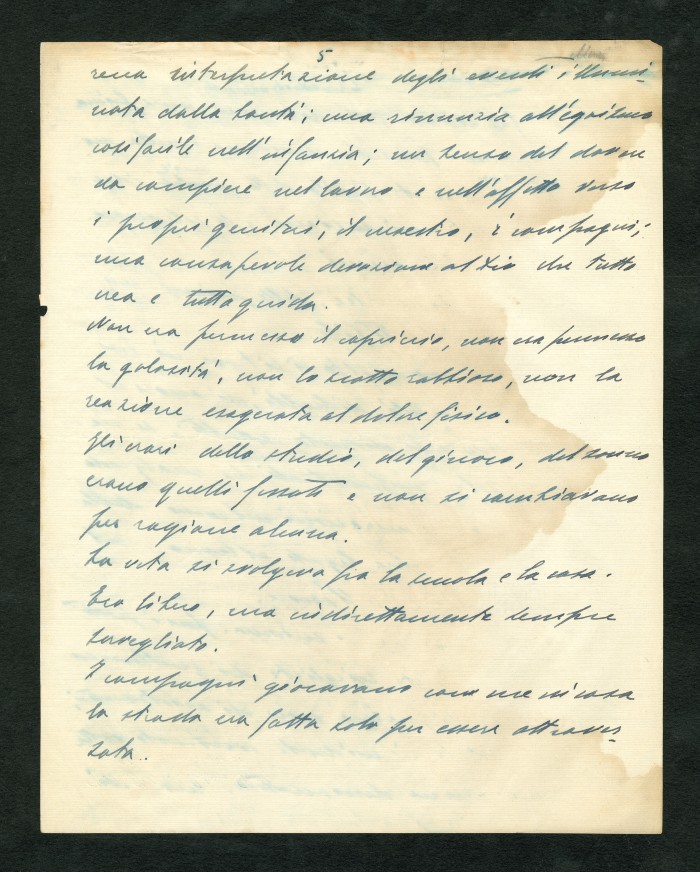 5
rena interpretazione degli eventi, illumi-
nata dalla bontà; una rinunzia all'egoismo
così facile nell'infanzia; un senso del dovere
da compiere nel lavoro e nell'affetto verso
i propri genitori, il maestro, i compagni;
una consapevole devozione al Dio che tutto
crea e tutto guida.
Non era permesso il capriccio, non era permessa
la golosità, non lo scatto rabbioso, non la
reazione esagerata al dolore fisico.
Gli orari dello studio, del giuoco, del sonno
erano quelli fissati e non si cambiavano
per ragione alcuna.
La vita si svolgeva fra la scuola e la casa.
Ero libero, ma indirettamente sempre
sorvegliato.
I compagni giocavano con me in casa
la strada era fatta solo per essere attraver-
sata.